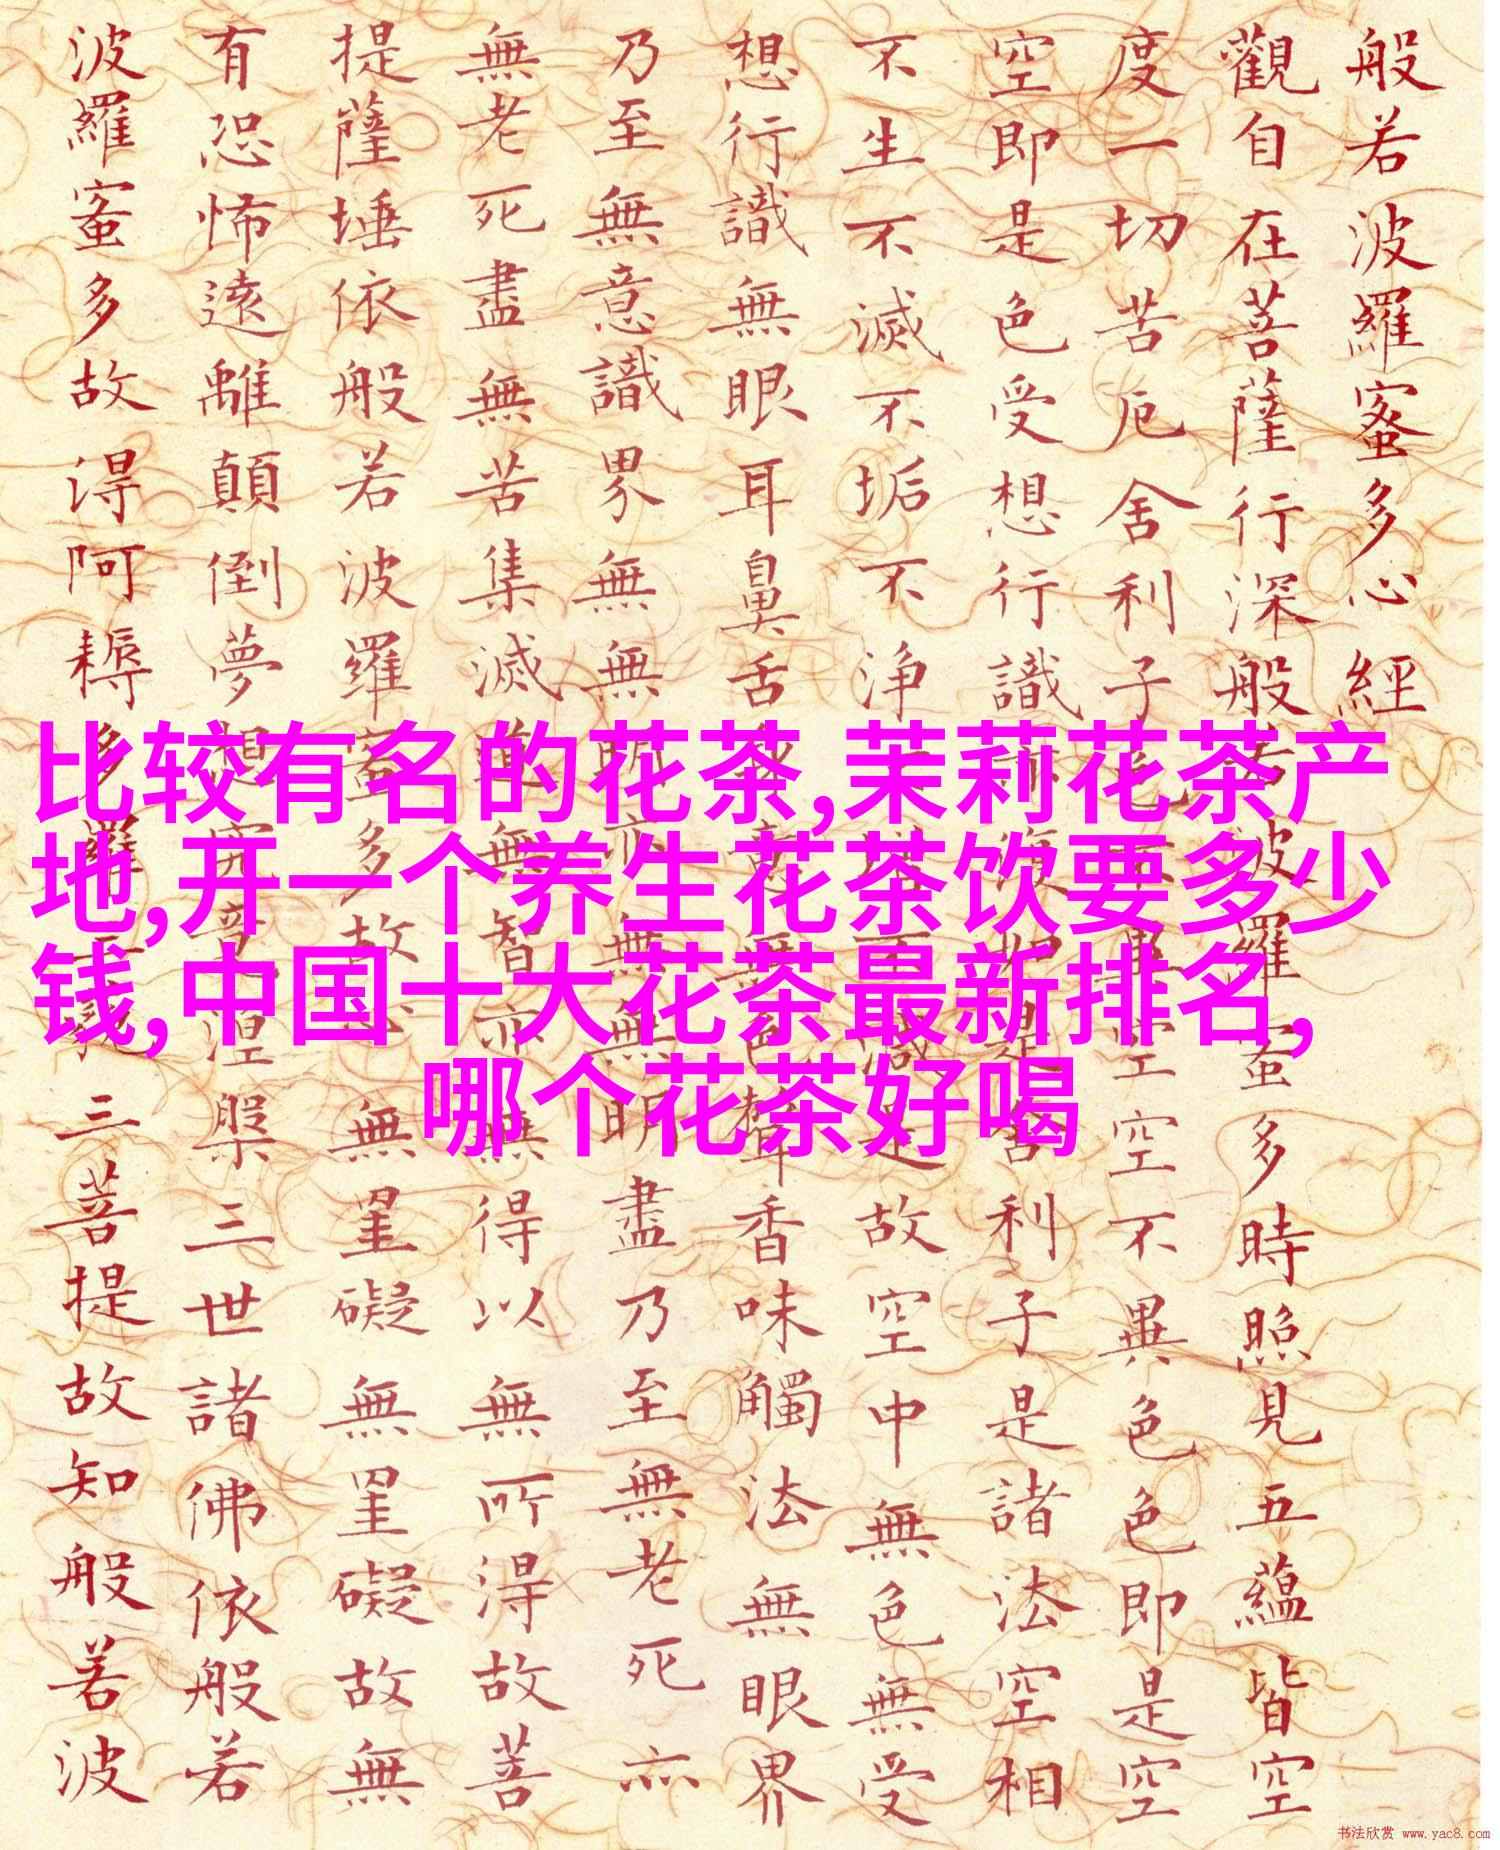 般若波羅蜜多心經
觀自在菩薩行深般若波羅蜜多時照見五蘊皆空
度一切苦厄舍利子色不異空空不異色色即是空
空即是色受想行識亦復如是舍利子是諸法空相
不生不滅不垢不浄不增不減是故空中無色無受
想行識無眼耳鼻舌身意無色聲香味觸法無眼界
乃至無意識界無無明亦無無明盡乃至無老死亦
無老死盡無苦集滅道無智亦無得以無所得故菩
提薩埵依般若波羅蜜多故心無罣礙無罣礙故無
有恐怖遠離顛倒夢想究竟涅槃三世諸佛依般若
波羅蜜多故得阿耨多羅三藐三菩提故知般若波
比较有名的花茶,茉莉花茶产
地,开一个养生花茶饮要多少
钱,中国十大花茶最新排名,
哪个花茶好喝
书法欣赏 www.yac8.com